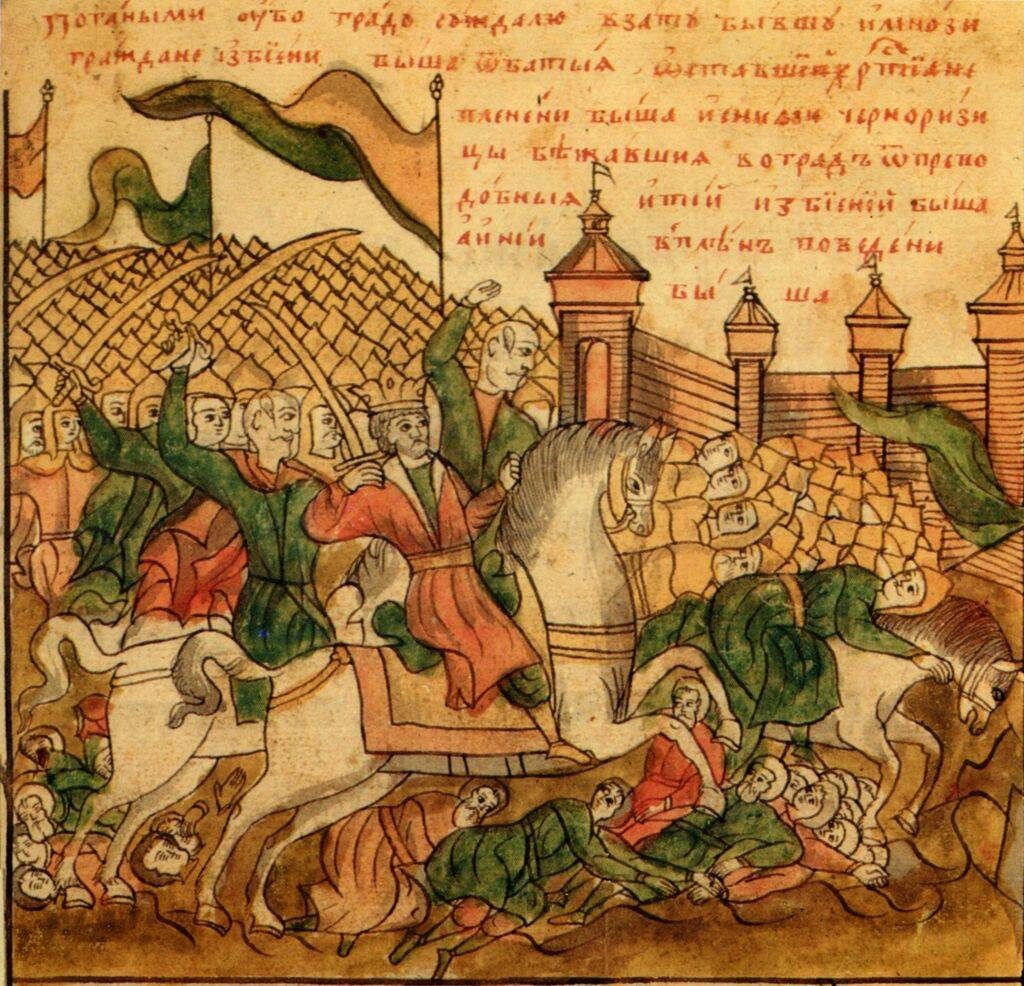 Погаными оубо градъ соуждалю взатъ бывшъ имнози
граждане избїени быша ѿбатыѧ ѿставшїиже хртїане
пленени быша иени черноризи
цы бѣжавшиѧ вотградъ ѿпрепо
добныѧ итїй избїений быша
аинїи вплѣнъ поведени
бы ша